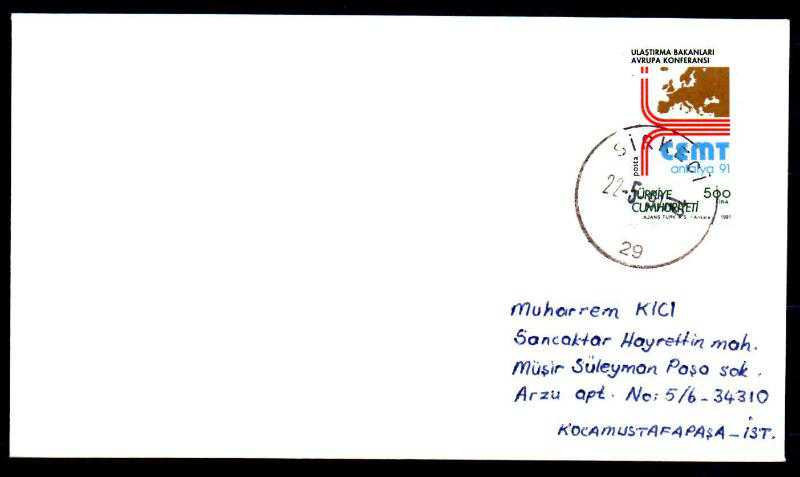 ULAŞTIRMA BAKANLARI
AVRUPA KONFERANSI
CEMT
antalya 91
posta
500
LİRA
TÜRKİYE
CUMHURİYETİ
AJANS TÜRK A.Ş. - Ankara 1991
SİRKECİ
22-5
29
Muharrem KICI
Sancaktar Hayrettin mah.
Müşir Süleyman Paşa sok.
Arzu apt. No: 5/6-34310
KOCAMUSTAFAPAŞA-İST.